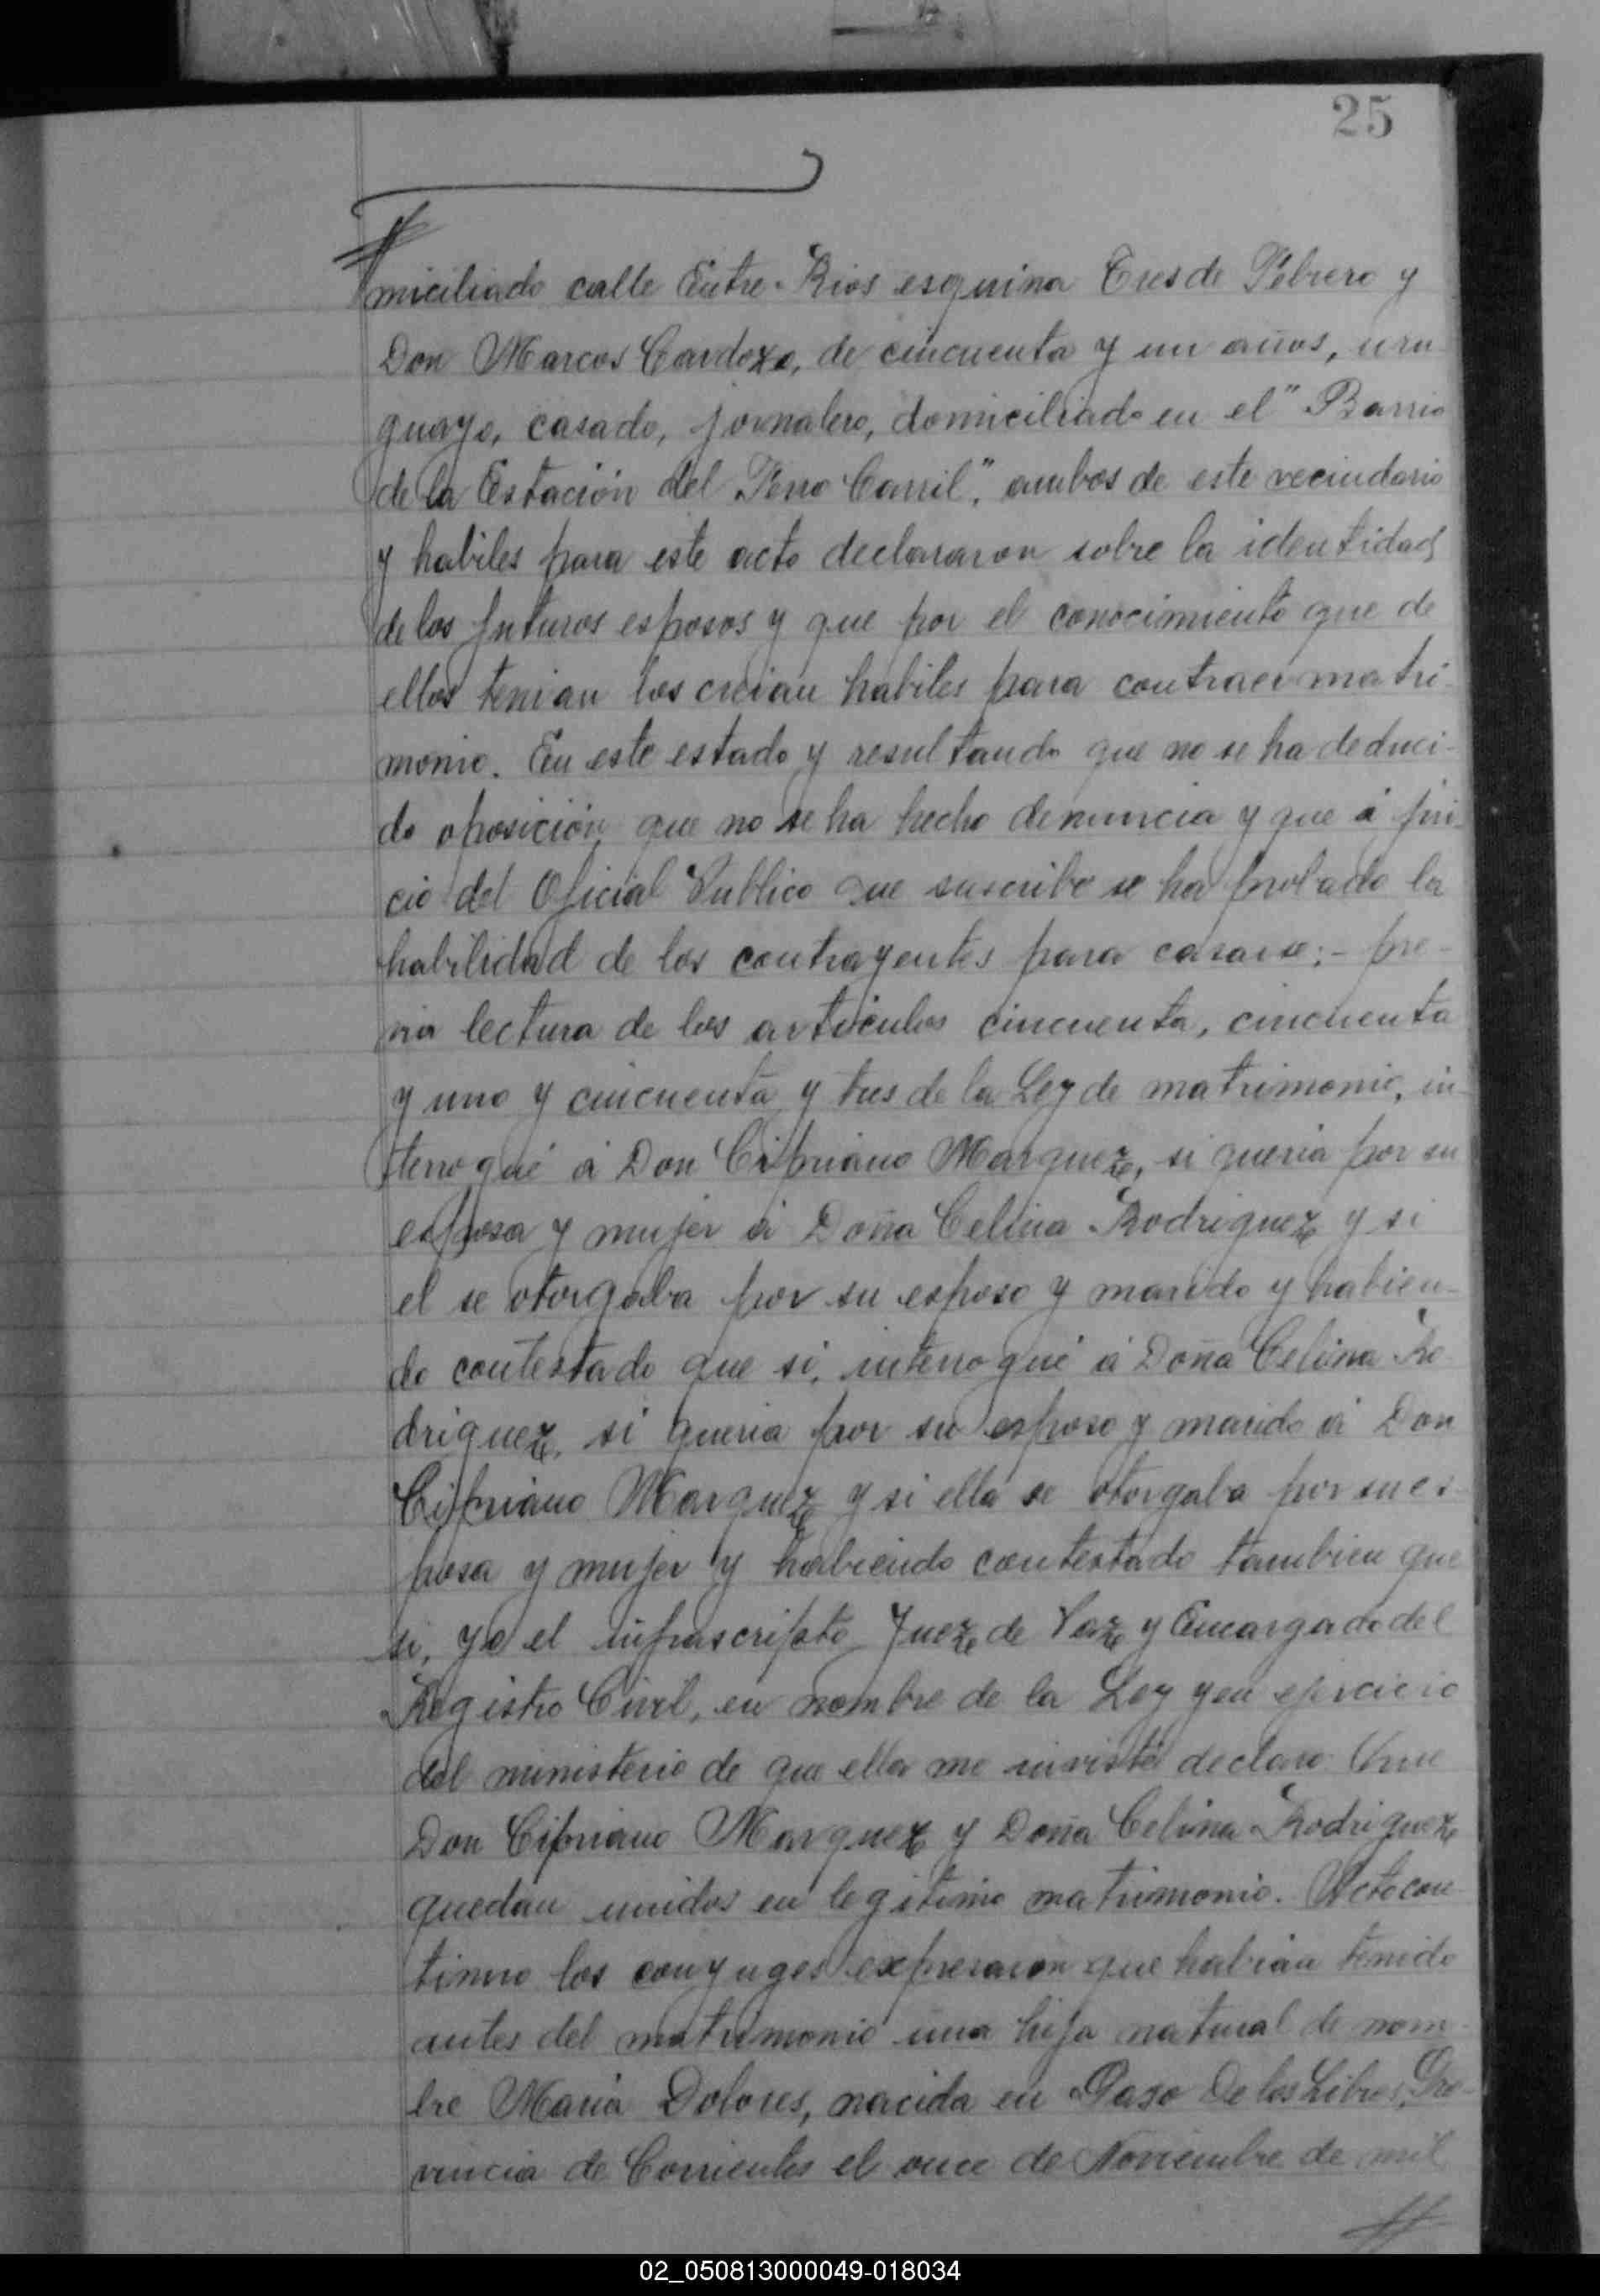 25
miciliado calle Entre-Rios esquina Tres de Febrero y
Don Marcos Cardozo, de cincuenta y un años, uru-
guayo, casado, jornalero, domiciliado en el "Barrio
de la Estación del Ferro Carril", ambos de este vecindario
y habiles para este acto declararon sobre la identidad
de los futuros esposos y que por el conocimiento que de
ellos tenian los creian habiles para contraer matri-
monio. En este estado y resultando que no se ha deduci-
do oposición, que no se ha hecho denuncia y que á jui-
cio del Oficial Publico que suscribe se ha probado la
habilidad de los contrayentes para casarse:- pre-
via lectura de los articulos cincuenta, cincuenta
y uno y cincuenta y tres de la Ley de matrimonio, in-
terrogué á Don Cipriano Marquez, si queria por su
esposa y mujer á Doña Celina Rodriguez y si
el se otorgaba por su esposo y marido y habien-
do contestado que si, interrogué á Doña Celina Ro-
driguez, si queria por su esposo y marido á Don
Cipriano Marquez y si ella se otorgaba por su es-
posa y mujer y habiendo contestado tambien que
si, yo el infrascripto Juez de Paz y Encargado del
Registro Civil, en nombre de la Ley y en ejercicio
del ministerio de que ella me inviste declaro: Que
Don Cipriano Marquez y Doña Celina Rodriguez
quedan unidos en legitimo matrimonio. Acto con-
tinuo los conyuges expresaron que habian tenido
antes del matrimonio una hija natural de nom-
bre Maria Dolores, nacida en Paso de los Libres, Pro-
vincia de Corrientes el once de Noviembre de mil
02_050813000049-018034